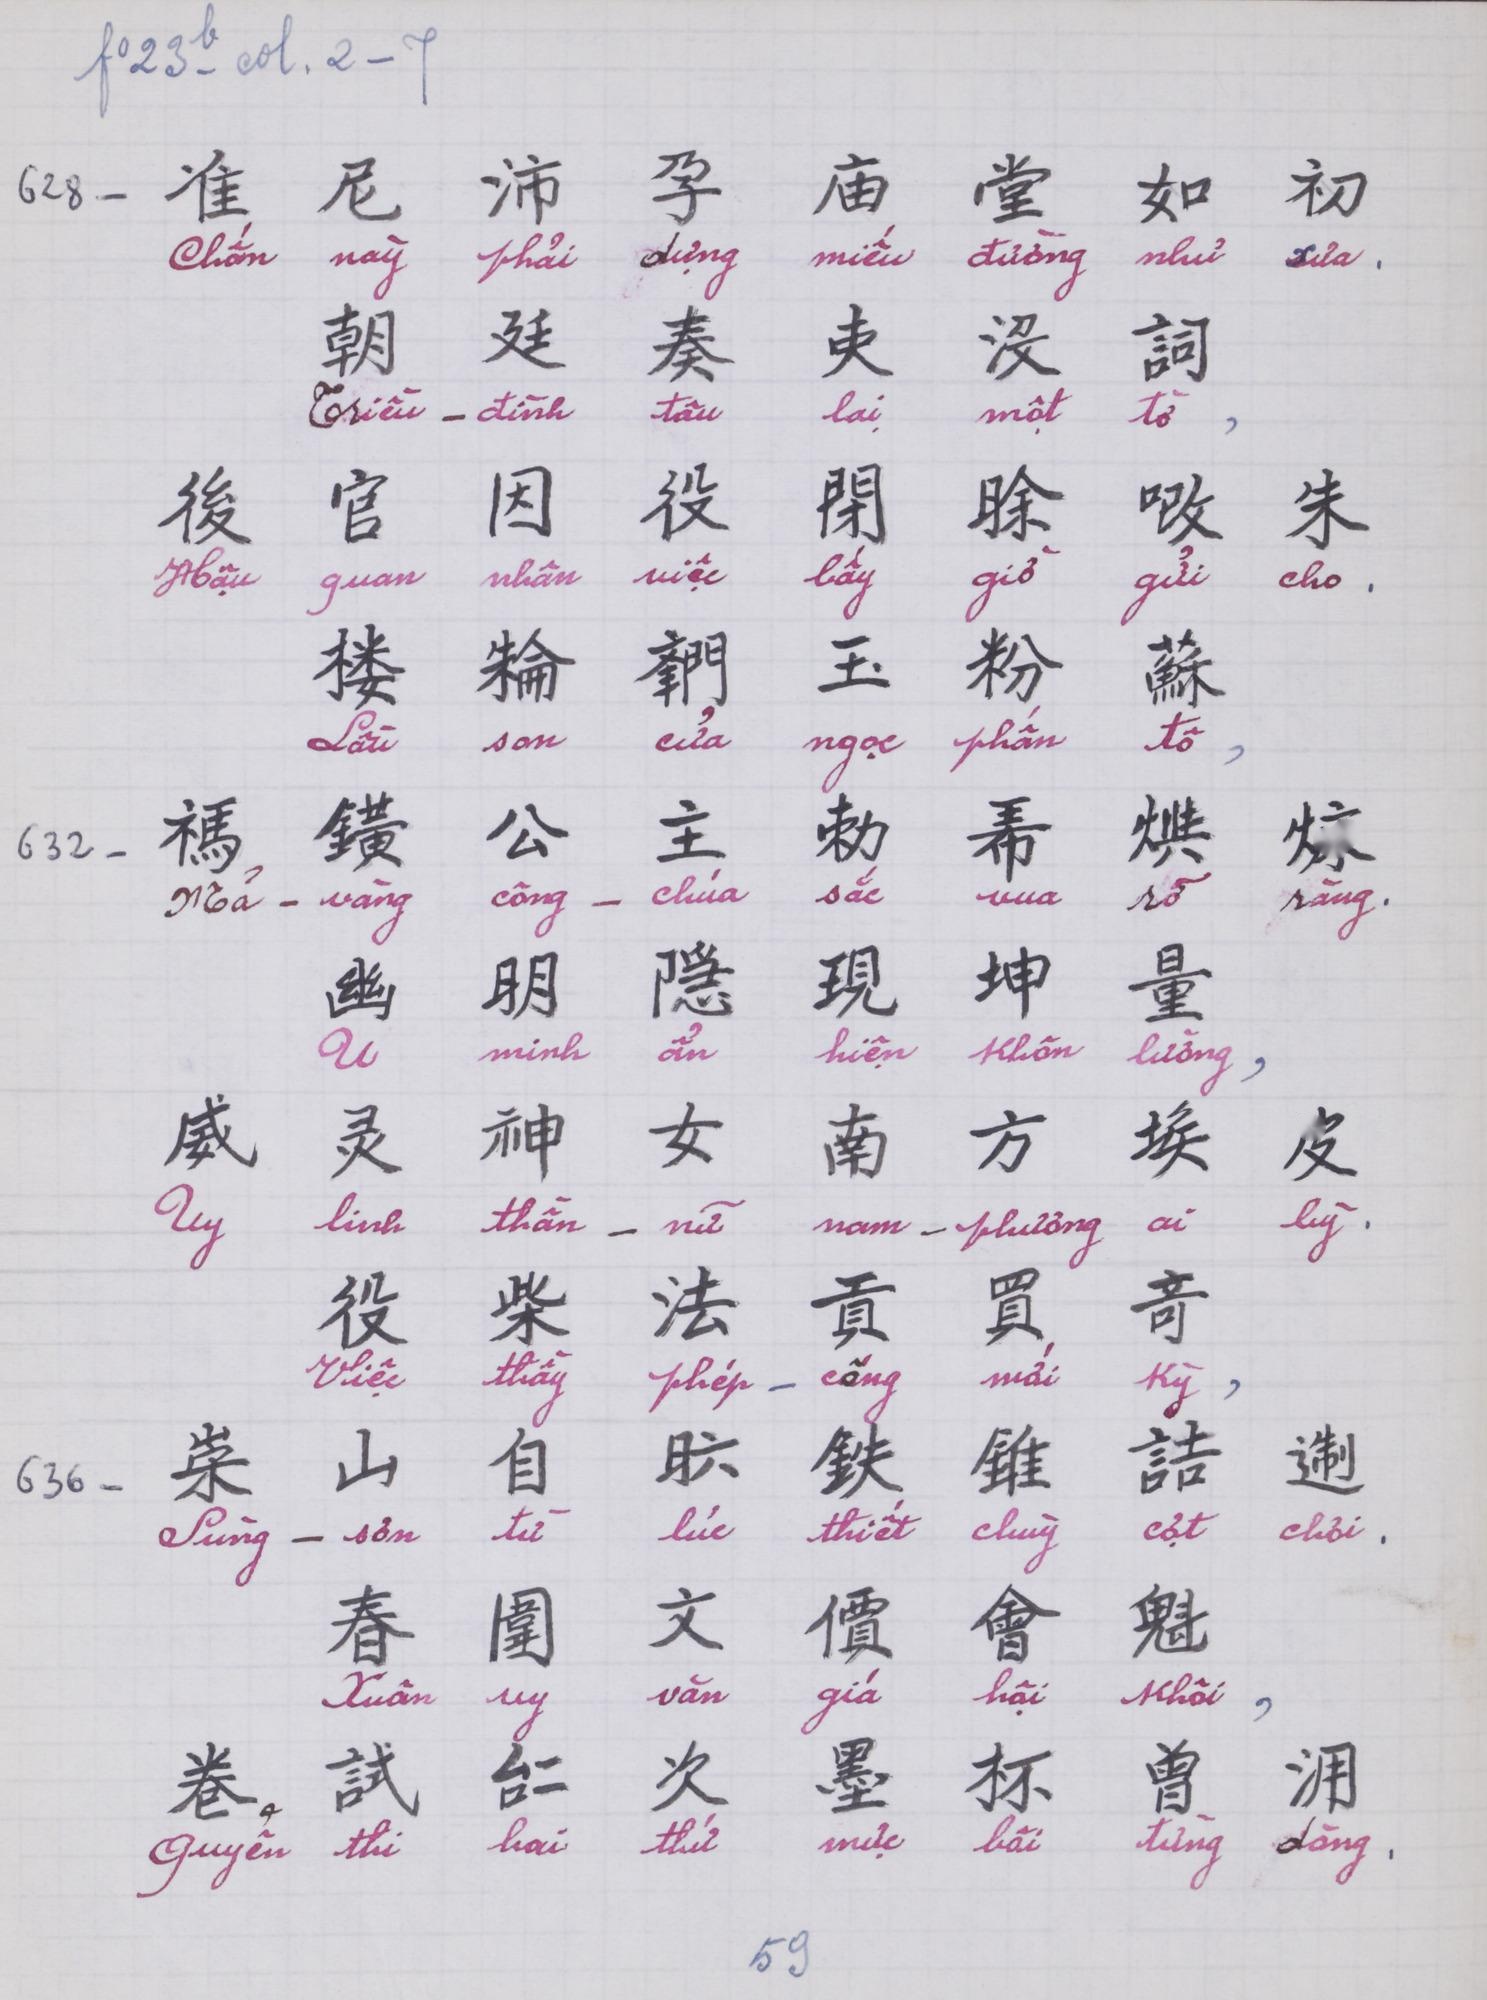 fº 23b col. 2-7
628- 准 尼 沛 孕 庙 堂 如 初
Chốn nầy phải dựng miếu đường như xưa.
朝 廷 奏 吏 没 詞
Triều-đình tâu lại một tờ,
後 官 因 役 閉 睱 㖫 朱
Hậu quan nhân việc bấy giờ gửi cho.
楼 𣘈 𨷶 玉 粉 蘇
Lầu son cửa ngọc phấn tô,
632- 禡 鐄 公 主 勅 𢂜 𤍊 𤉜
Mã-vàng công-chúa sắc vua rỡ ràng.
幽 明 隠 現 坤 量
U minh ẩn hiện khôn lường,
威 灵 神 女 南 方 埃 皮
Uy linh thần-nữ nam-phương ai bỳ.
役 柴 法 貢 買 竒
Việc thầy phép-cống mới kỳ,
636- 崇 山 自 𣅶 鉄 錐 詰 𨔾
Sùng-sơn từ lúc thiết chuỳ cợt chơi.
春 圍 文 價 會 魁
Xuân uy văn giá hội khôi,
卷 試 𠄩 次 墨 杯 曾 𣳔
Quyển thi hai thứ mực bôi từng dòng.
59